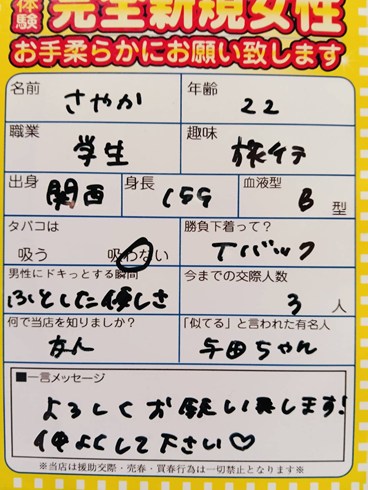 体験
完全新規女性
お手柔らかにお願い致します
名前 さやか
年齢 22
職業 学生
趣味 旅行
出身 関西
身長 159
血液型 B 型
タバコは
吸う 吸わない
勝負下着って？
Tバック
男性にドキっとする瞬間
ふとした優しさ
今までの交際人数
3 人
何で当店を知りましたか？
友人
「似てる」と言われた有名人
与田ちゃん
■一言メッセージ
よろしくお願い致します!
仲よくして下さい♡
※当店は援助交際・売春・買春行為は一切禁止となります※